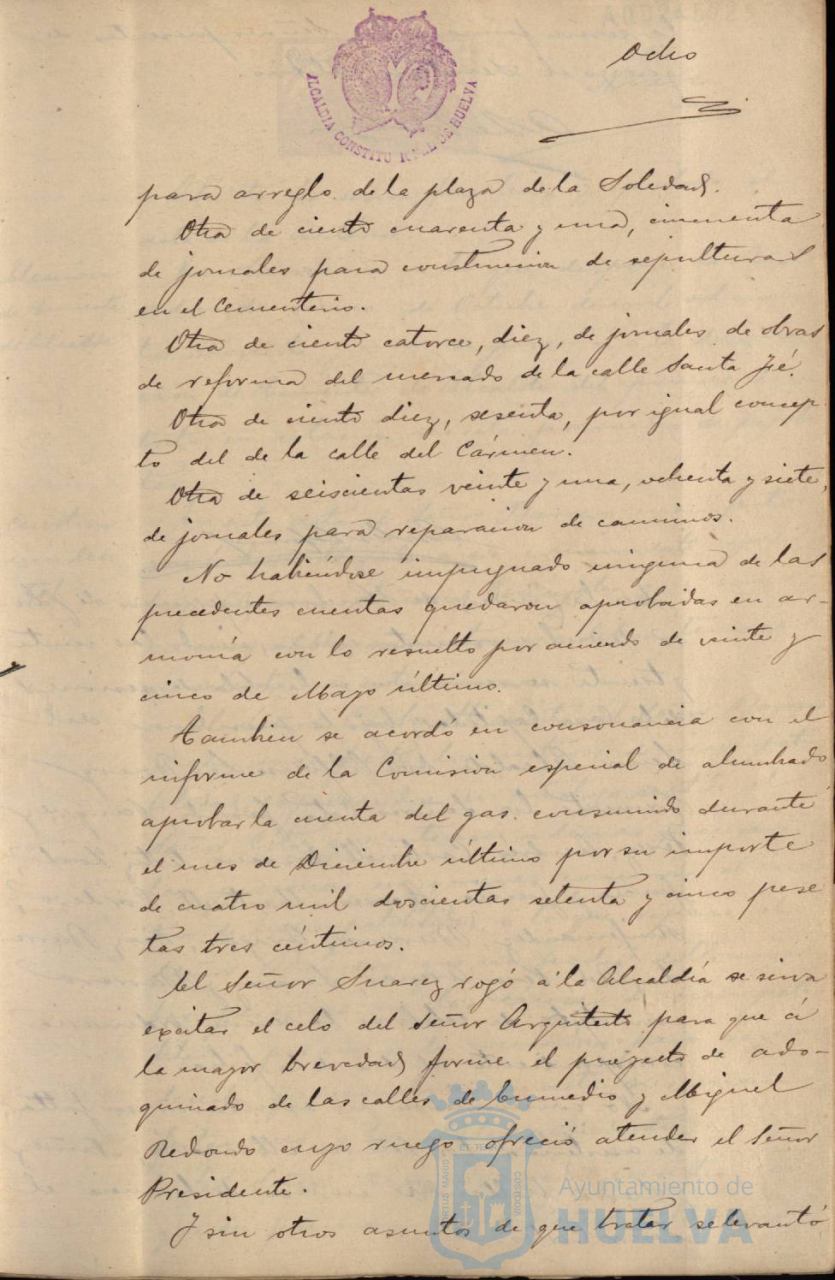 Ocho
ALCALDIA CONSTITU DE HUELVA
para arreglo de la plaza de la Soledad.
Otra de ciento cuarenta y una, cincuenta
de jornales para construccion de sepulturas
en el Cementerio.
Otra de ciento catorce, diez, de jornales de obras
de reforma del mercado de la calle Santa Fé.
Otra de ciento diez, sesenta, por igual concep-
to del de la calle del Cármen.
Otra de seiscientas veinte y una, ochenta y siete,
de jornales para reparacion de caminos.
No habiéndose impugnado ninguna de las
precedentes cuentas quedaron aprobadas en ar-
monía con lo resuelto por acuerdo de veinte y
cinco de Mayo último.
Tambien se acordó en consonancia con el
informe de la Comision especial de alumbrado
aprobar la cuenta del gas consumido durante
el mes de Diciembre último por su importe
de cuatro mil doscientas setenta y cinco pese
tas tres céntimos.
El Señor Suarez rogó á la Alcaldía se sirva
excitar el celo del Señor Arquitecto para que á
la mayor brevedad forme el proyecto de ado-
quinado de las calles de Enmedio y Miguel
Redondo cuyo ruego ofreció atender el Señor
Presidente.
Y sin otros asuntos de que tratar se levantó
Ayuntamiento de
HUELVA